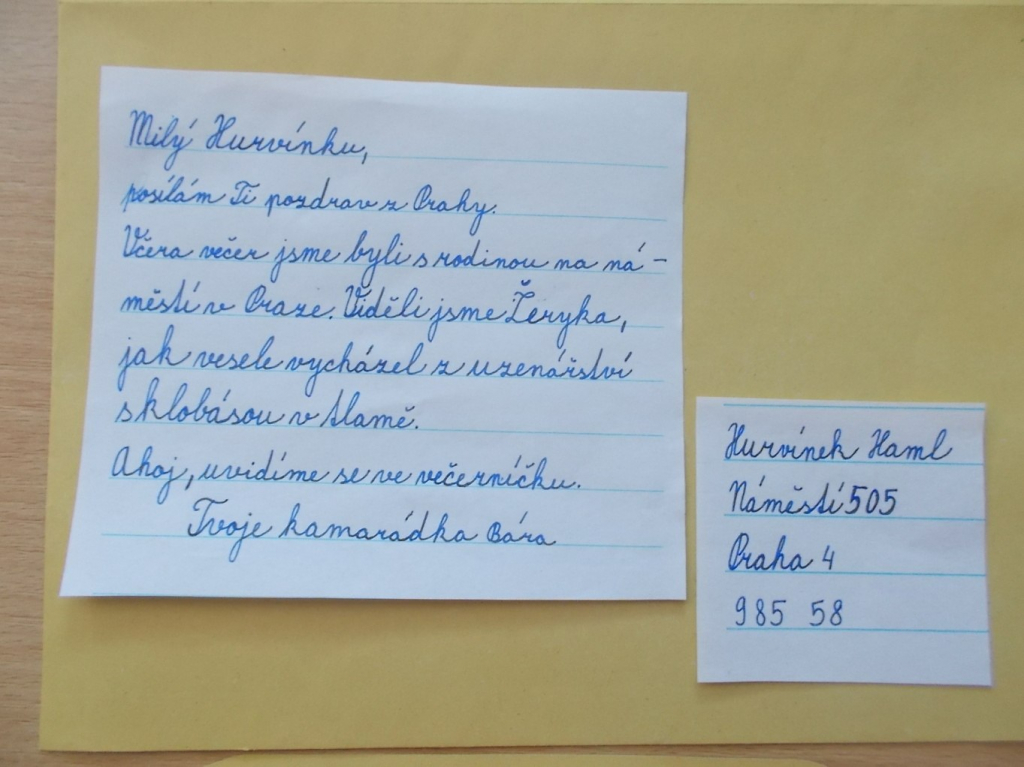 Milý Hurvínku,
posílám Ti pozdrav z Prahy.
Včera večer jsme byli s rodinou na ná-
městí v Praze. Viděli jsme Žeryka,
jak vesele vycházel z uzenářství
s klobásou v tlamě.
Ahoj, uvidíme se ve večerníčku.
Tvoje kamarádka Bára
Hurvínek Haml
Náměstí 505
Praha 4
985 58